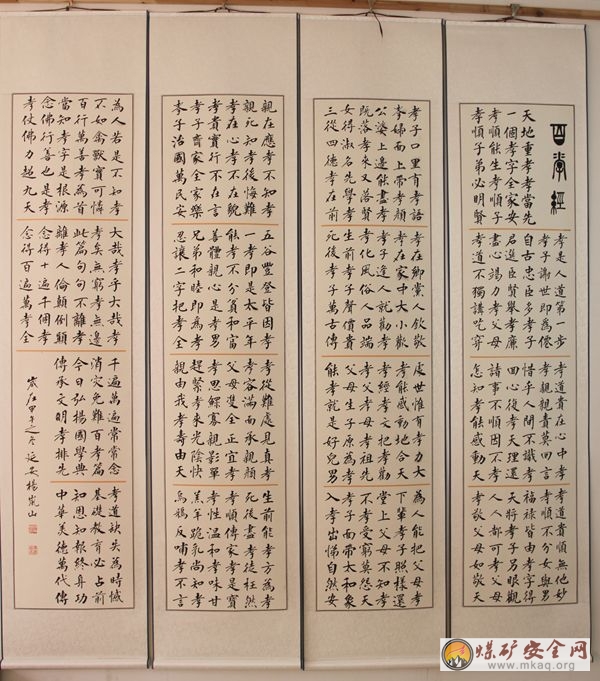 百孝經
天地重孝孝當先
一個孝字全家安
孝順能生孝順子
孝順子弟必明賢
孝是人道第一步
孝子謝世即為僊
自古忠臣多孝子
君選臣賢舉孝廉
盡心竭力孝父母
孝道不獨講吃穿
孝道貴在心中孝
孝親親責莫回言
惜乎人間不識孝
回心復孝天理還
諸事不順因不孝
怎知孝能感動天
孝道貴順無他妙
孝順不分女與男
福祿皆由孝字得
天將孝子另眼觀
人人都可孝父母
孝敬父母如敬天
孝子口里有孝語
孝婦面上帶孝顏
公婆上邊能盡孝
既落孝來又落賢
女得淑名先學孝
三從四德孝在前
孝在鄉黨人欽敬
孝在家中大小歡
孝子逢人就勸孝
孝化風俗人品端
生前孝子聲價貴
死後孝子萬古傳
處世惟有孝力大
孝能感動地合天
孝經孝文把孝勸
孝父孝母孝祖先
父母生子原為孝
能孝就是好兒男
為人能把父母孝
下輩孝子照樣還
堂上父母不知孝
不孝受窮莫怨天
孝子面帶太和象
入孝出悌自然安
親在應孝不知孝
親死知孝後悔難
孝在心孝不在貌
孝貴實行不在言
孝子齊家全家樂
孝子治國萬民安
五谷豐登皆因孝
一孝即是太平年
能孝不分貧和富
善體親心是孝男
兄弟和睦即為孝
忍讓二字把孝全
孝從難處見真孝
孝容滿面承親顏
父母雙全正宜孝
孝思鰥寡親影單
趕緊孝來光陰快
親由我孝壽由天
生前能孝方為孝
死後盡孝徒枉然
孝順傳家孝是寶
孝性溫和孝味甘
羔羊跪乳尚知孝
烏鴉反哺孝不言
為人若是不知孝
不如禽獸實可憐
百行萬善孝為首
當知孝字是根源
念佛行善也是孝
孝仗佛力超九天
大哉孝乎大哉孝
孝矣無窮孝無邊
此篇句句不離孝
離孝人倫顛倒顛
念得十遍千個孝
念得百遍萬孝全
千遍萬遍常常念
消灾免難百孝篇
今日弘揚國學典
傳承文明孝排先
孝道缺失為時憾
基礎教育必占前
知恩知報終身功
中華美德萬代傳
歲在甲午之冬延安楊嵐山
煤矿安全网
www.mkaq.org